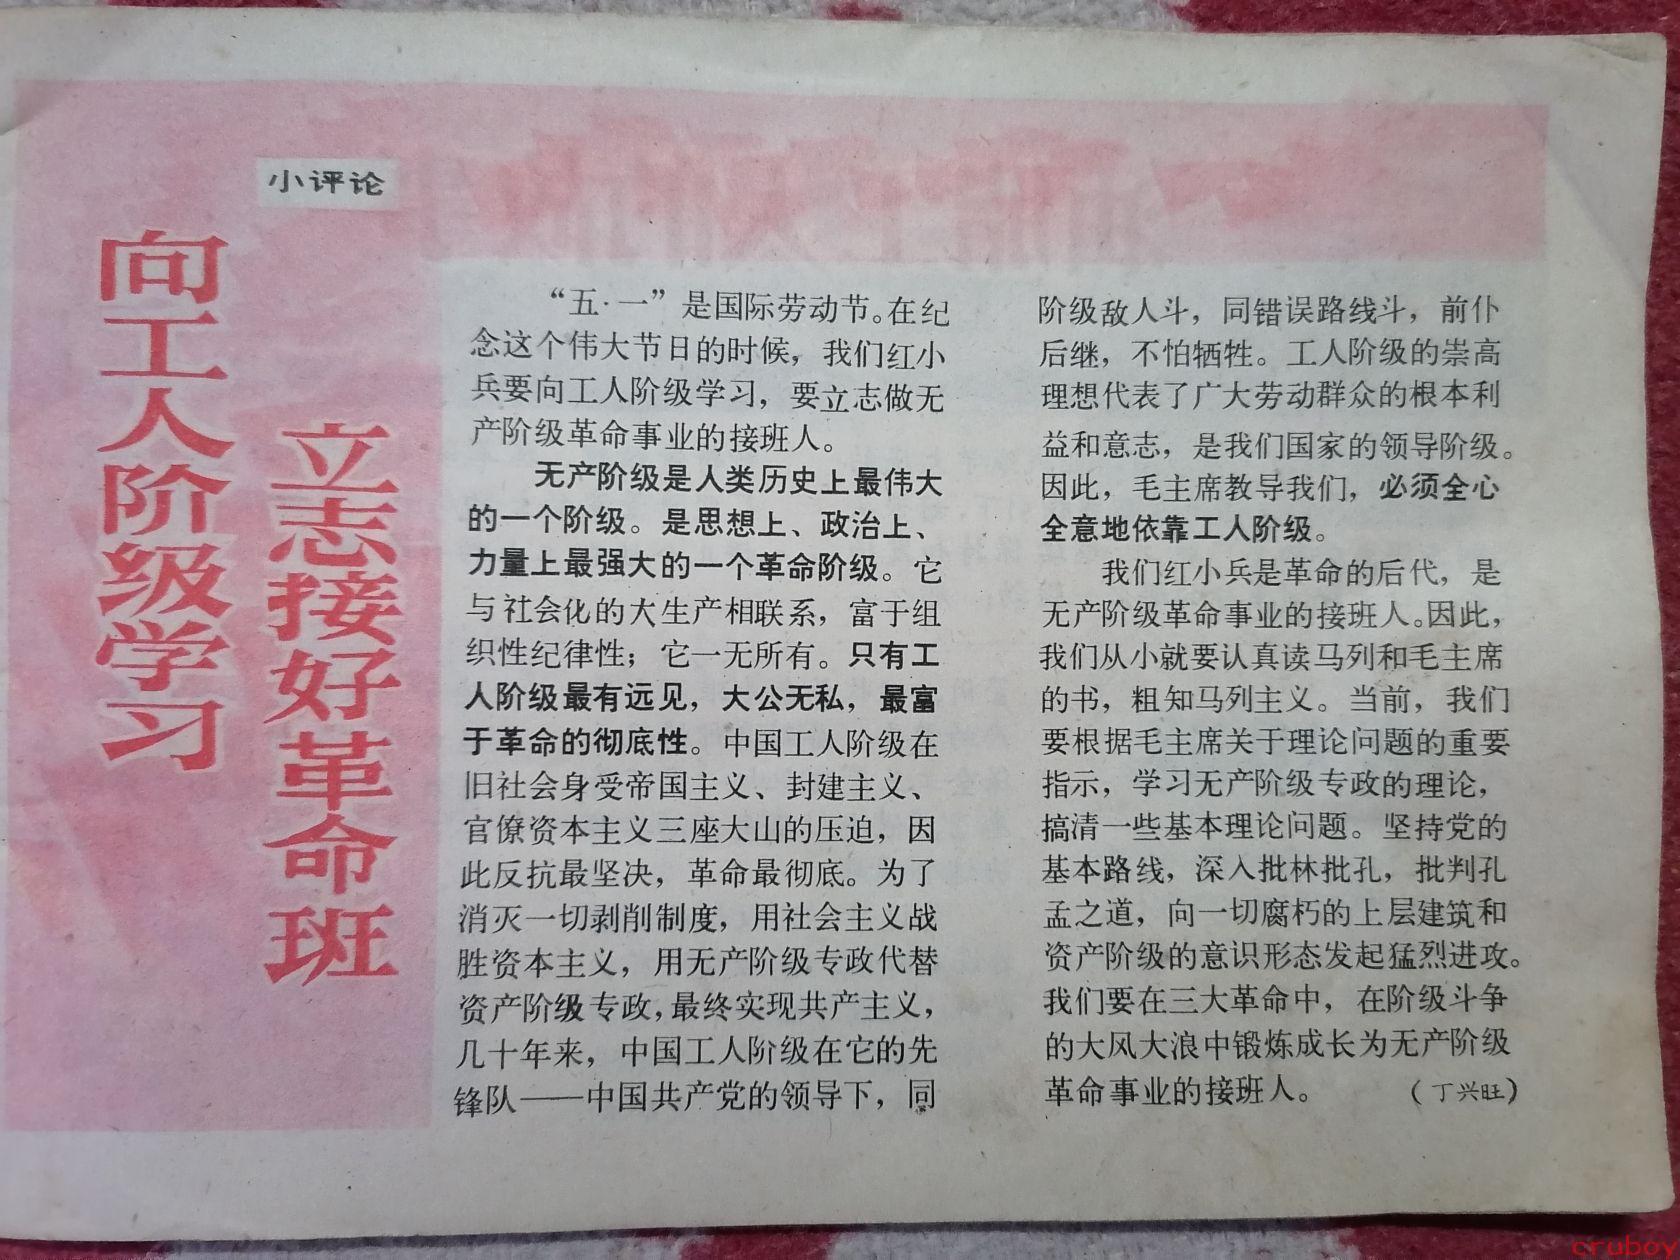 小评论
向工人阶级学习
立志接好革命班
“五·一”是国际劳动节。在纪
念这个伟大节日的时候，我们红小
兵要向工人阶级学习，要立志做无
产阶级革命事业的接班人。
无产阶级是人类历史上最伟大
的一个阶级。是思想上、政治上、
力量上最强大的一个革命阶级。它
与社会化的大生产相联系，富于组
织性纪律性；它一无所有。只有工
人阶级最有远见，大公无私，最富
于革命的彻底性。中国工人阶级在
旧社会身受帝国主义、封建主义、
官僚资本主义三座大山的压迫，因
此反抗最坚决，革命最彻底。为了
消灭一切剥削制度，用社会主义战
胜资本主义，用无产阶级专政代替
资产阶级专政，最终实现共产主义，
几十年来，中国工人阶级在它的先
锋队——中国共产党的领导下，同
阶级敌人斗，同错误路线斗，前仆
后继，不怕牺牲。工人阶级的崇高
理想代表了广大劳动群众的根本利
益和意志，是我们国家的领导阶级。
因此，毛主席教导我们，必须全心
全意地依靠工人阶级。
我们红小兵是革命的后代，是
无产阶级革命事业的接班人。因此，
我们从小就要认真读马列和毛主席
的书，粗知马列主义。当前，我们
要根据毛主席关于理论问题的重要
指示，学习无产阶级专政的理论，
搞清一些基本理论问题。坚持党的
基本路线，深入批林批孔，批判孔
孟之道，向一切腐朽的上层建筑和
资产阶级的意识形态发起猛烈进攻。
我们要在三大革命中，在阶级斗争
的大风大浪中锻炼成长为无产阶级
革命事业的接班人。
（丁兴旺）
cruboy